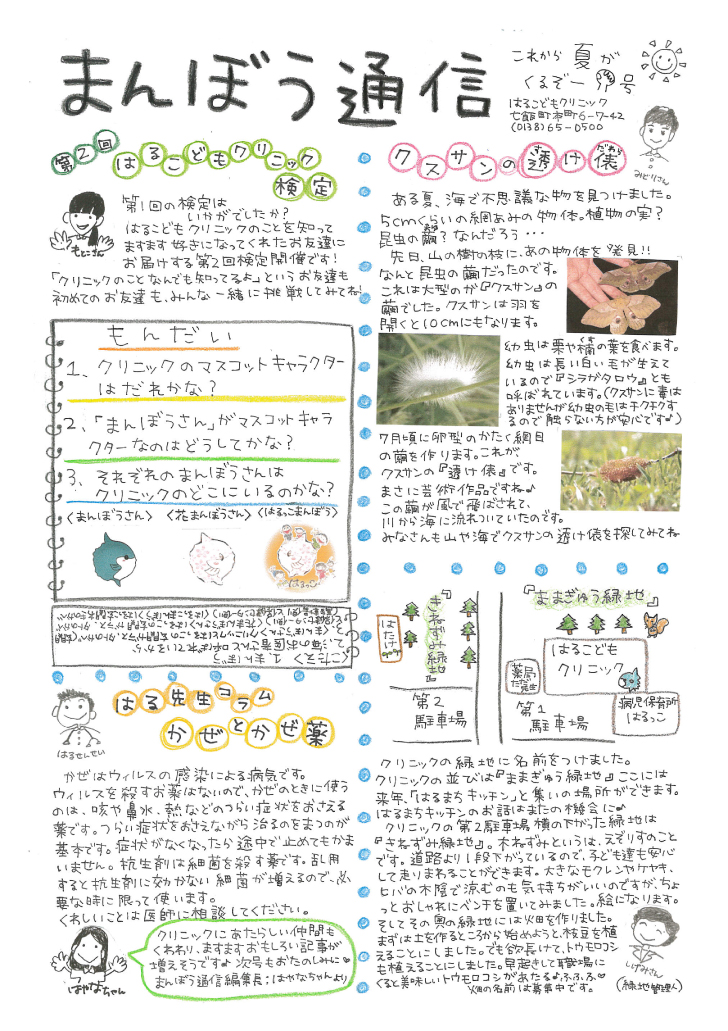 まんぼう通信
これから夏が
くるぞー号
はるこどもクリニック
七飯町本町6-7-42
(0138)65-0500
みどりさん
第2回
はるこどもクリニック
検定
もとこさん
第1回の検定は
いかがでしたか？
はるこどもクリニックのことを知って
ますます好きになってくれたお友達に
お届けする第2回検定開催です！
「クリニックのことなんでも知ってるよ」というお友達も
初めてのお友達も、みんな一緒に挑戦してみてね!
もんだい
1、クリニックのマスコットキャラクター
はだれかな？
2、「まんぼうさん」がマスコットキャラ
クターなのはどうしてかな？
3、それぞれのまんぼうさんは
クリニックのどこにいるのかな？
〈まんぼうさん〉 〈花まんぼうさん〉 〈はるっこまんぼう〉
はるっこ
〈こたえ〉 1.まんぼう
2.海のお医者さんとよばれているから
はる先生コラム
かぜとかぜ薬
はるせんせい
かぜはウィルスの感染による病気です。
ウィルスを殺すお薬はないので、かぜのときに使う
のは、咳や鼻水、熱などのつらい症状をおさえる
薬です。つらい症状をおさえながら治るのをまつのが
基本です。症状がなくなったら途中で止めてもかま
いません。抗生剤は細菌を殺す薬です。乱用
すると抗生剤に効かない細菌が増えるので、必
要な時に限って使います。
くわしいことは医師に相談してください。
はやなちゃん
クリニックにあたらしい仲間も
くわわり、ますますおもしろい記事が
増えそうです♪次号もおたのしみに♡
まんぼう通信編集長：はやなちゃんより
クスサンの透け俵
すだわら
ある夏、海で不思議な物を見つけました。
5cmくらいの網あみの物体。植物の実？
昆虫の繭？なんだろう…
先日、山の樹の枝に、あの物体を発見!!
なんと昆虫の繭だったのです。
これは大型のが『クスサン』の
繭でした。クスサンは羽を
開くと10cmにもなります。
幼虫は栗や楠の葉を食べます。
幼虫は長い白い毛が生えて
いるので『シラガタロウ』とも
呼ばれています。(クスサンに毒は
ありませんが幼虫の毛はチクチクす
るので触らない方が安心です♪)
7月頃に卵型のかたく網目
の繭を作ります。これが
クスサンの『透け俵』です。
まさに芸術作品ですね♪
この繭が風で飛ばされて、
川から海に流れついていたのです。
みなさんも山や海でクスサンの透け俵を探してみてね
『きねずみ緑地』
はたけ
第2
駐車場
『ままぎゅう緑地』
はるこども
クリニック
薬局
第1
駐車場
病児保育所
はるっこ
クリニックの緑地に名前をつけました。
クリニックの並びは『ままぎゅう緑地』ここには
来年、「はるまちキッチン」と集いの場所ができます。
はるまちキッチンのお話はまたの機会に♪
クリニックの第2駐車場横の下がった緑地は
『きねずみ緑地』。木ねずみというは、えぞりすのこと
です。道路より1段下がっているので、子ども達も安心
して走りまわることができます。大きなモクレンやケヤキ、
ヒバの木陰で涼むのも気持ちがいいのですが、ちょ
っとおしゃれにベンチを置いてみました。絵になります。
そしてその奥の緑地には畑を作りました。
まずは土を作るところから始めようと、枝豆を植
えることにしました。でも欲長けて、トウモロコシ
も植えることにしました。早起きして職場に
くると美味しいトウモロコシがあたる♪ふふふ♡
畑の名前は募集中です。
いけみさん
(緑地管理人)